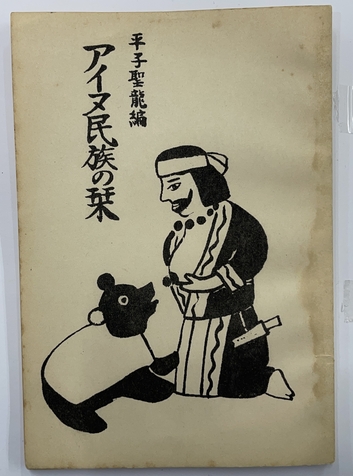 平子聖龍編
アイヌ民族の栞